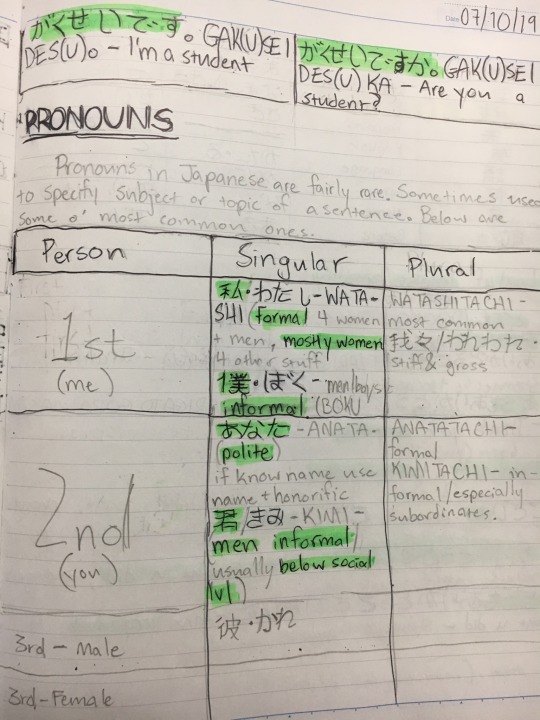 Date 07/10/19
がくせいです。GAK(U)SEI
DES(U)。- I'm a student
がくせいですか。GAK(U)SEI
DES(U) KA - Are you a
student?
PRONOUNS
Pronouns in Japanese are fairly rare. Sometimes used
to specify subject or topic of a sentence. Below are
some o' most common ones.
Person
Singular
Plural
1st
(me)
私・わたし-WATA-
SHI (formal 4 women
+ men, mostly women
4 other stuff
僕・ぼく- men/boys
informal (BOKU
WATASHITACHI -
most common
我々/われわれ・
stiff & gross
2nd
(you)
あなた -ANATA-
(polite)
if know name use
name + honorific
君/きみ-KIMI-
men informal/
usually below social
lvl)
ANATATACHI-
formal
KIMITACHI- in-
formal/especially
subordinates.
3rd - Male
彼・かれ
3rd-Female